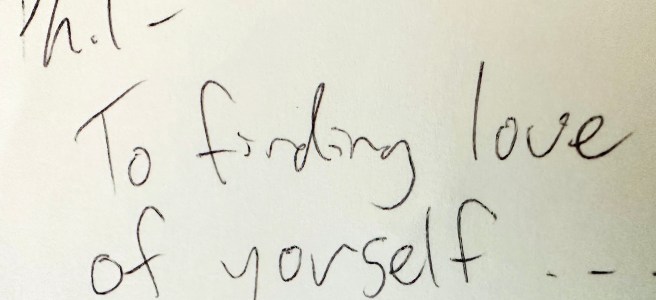 Phil -
To finding love
of yourself . - .